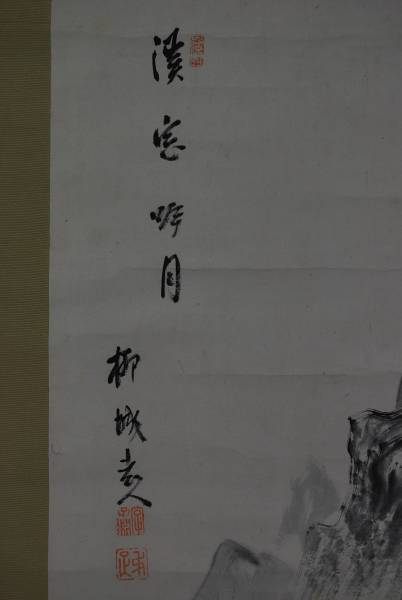 溪窓吟月
柳城老人